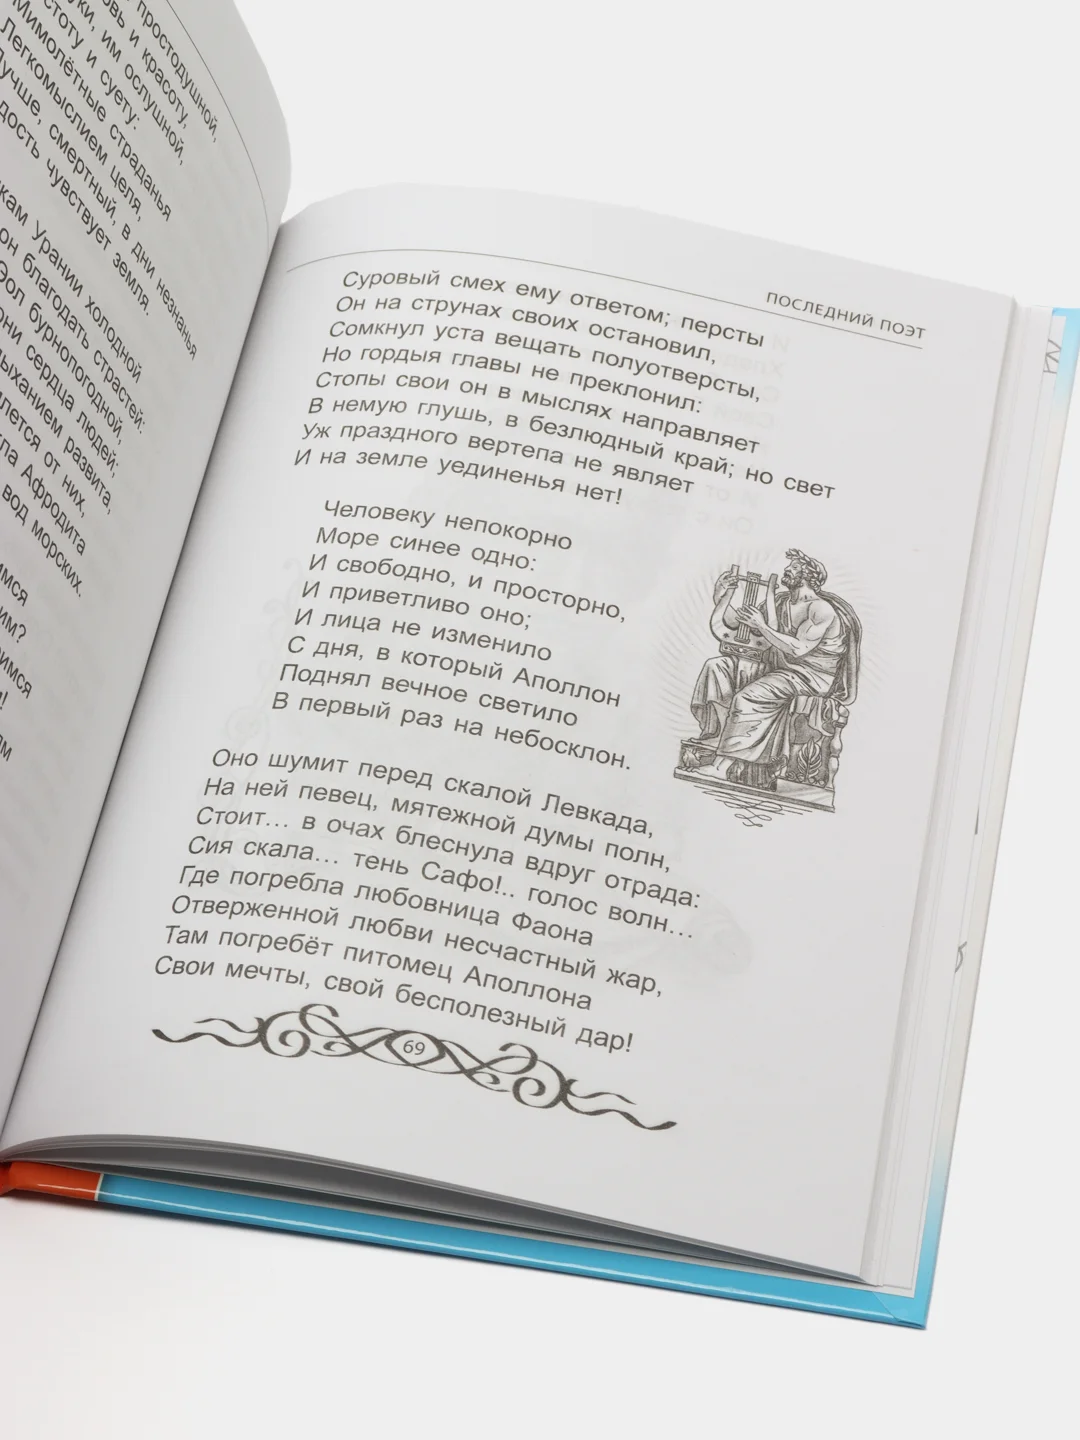 простодушной,
и красоту,
им ослушной,
и суету:
Мимолётные страданья
Легкомыслием целя,
смертный, в дни незнанья
чувствует земля.
Урании холодной
он благодать страстей:
Эол бурнопогодной,
они сердца людей;
дыханием развита,
от них,
Афродита
вод морских.
ПОСЛЕДНИЙ ПОЭТ
Суровый смех ему ответом; персты
Он на струнах своих остановил,
Сомкнул уста вещать полуотверсты,
Но гордыя главы не преклонил:
Стопы свои он в мыслях направляет
В немую глушь, в безлюдный край; но свет
Уж праздного вертепа не являет
И на земле уединенья нет!
Человеку непокорно
Море синее одно:
И свободно, и просторно,
И приветливо оно;
И лица не изменило
С дня, в который Аполлон
Поднял вечное светило
В первый раз на небосклон.
Оно шумит перед скалой Левкада,
На ней певец, мятежной думы полн,
Стоит... в очах блеснула вдруг отрада:
Сия скала... тень Сафо!.. голос волн...
Где погребла любовница Фаона
Отверженной любви несчастный жар,
Там погребёт питомец Аполлона
Свои мечты, свой бесполезный дар!
69